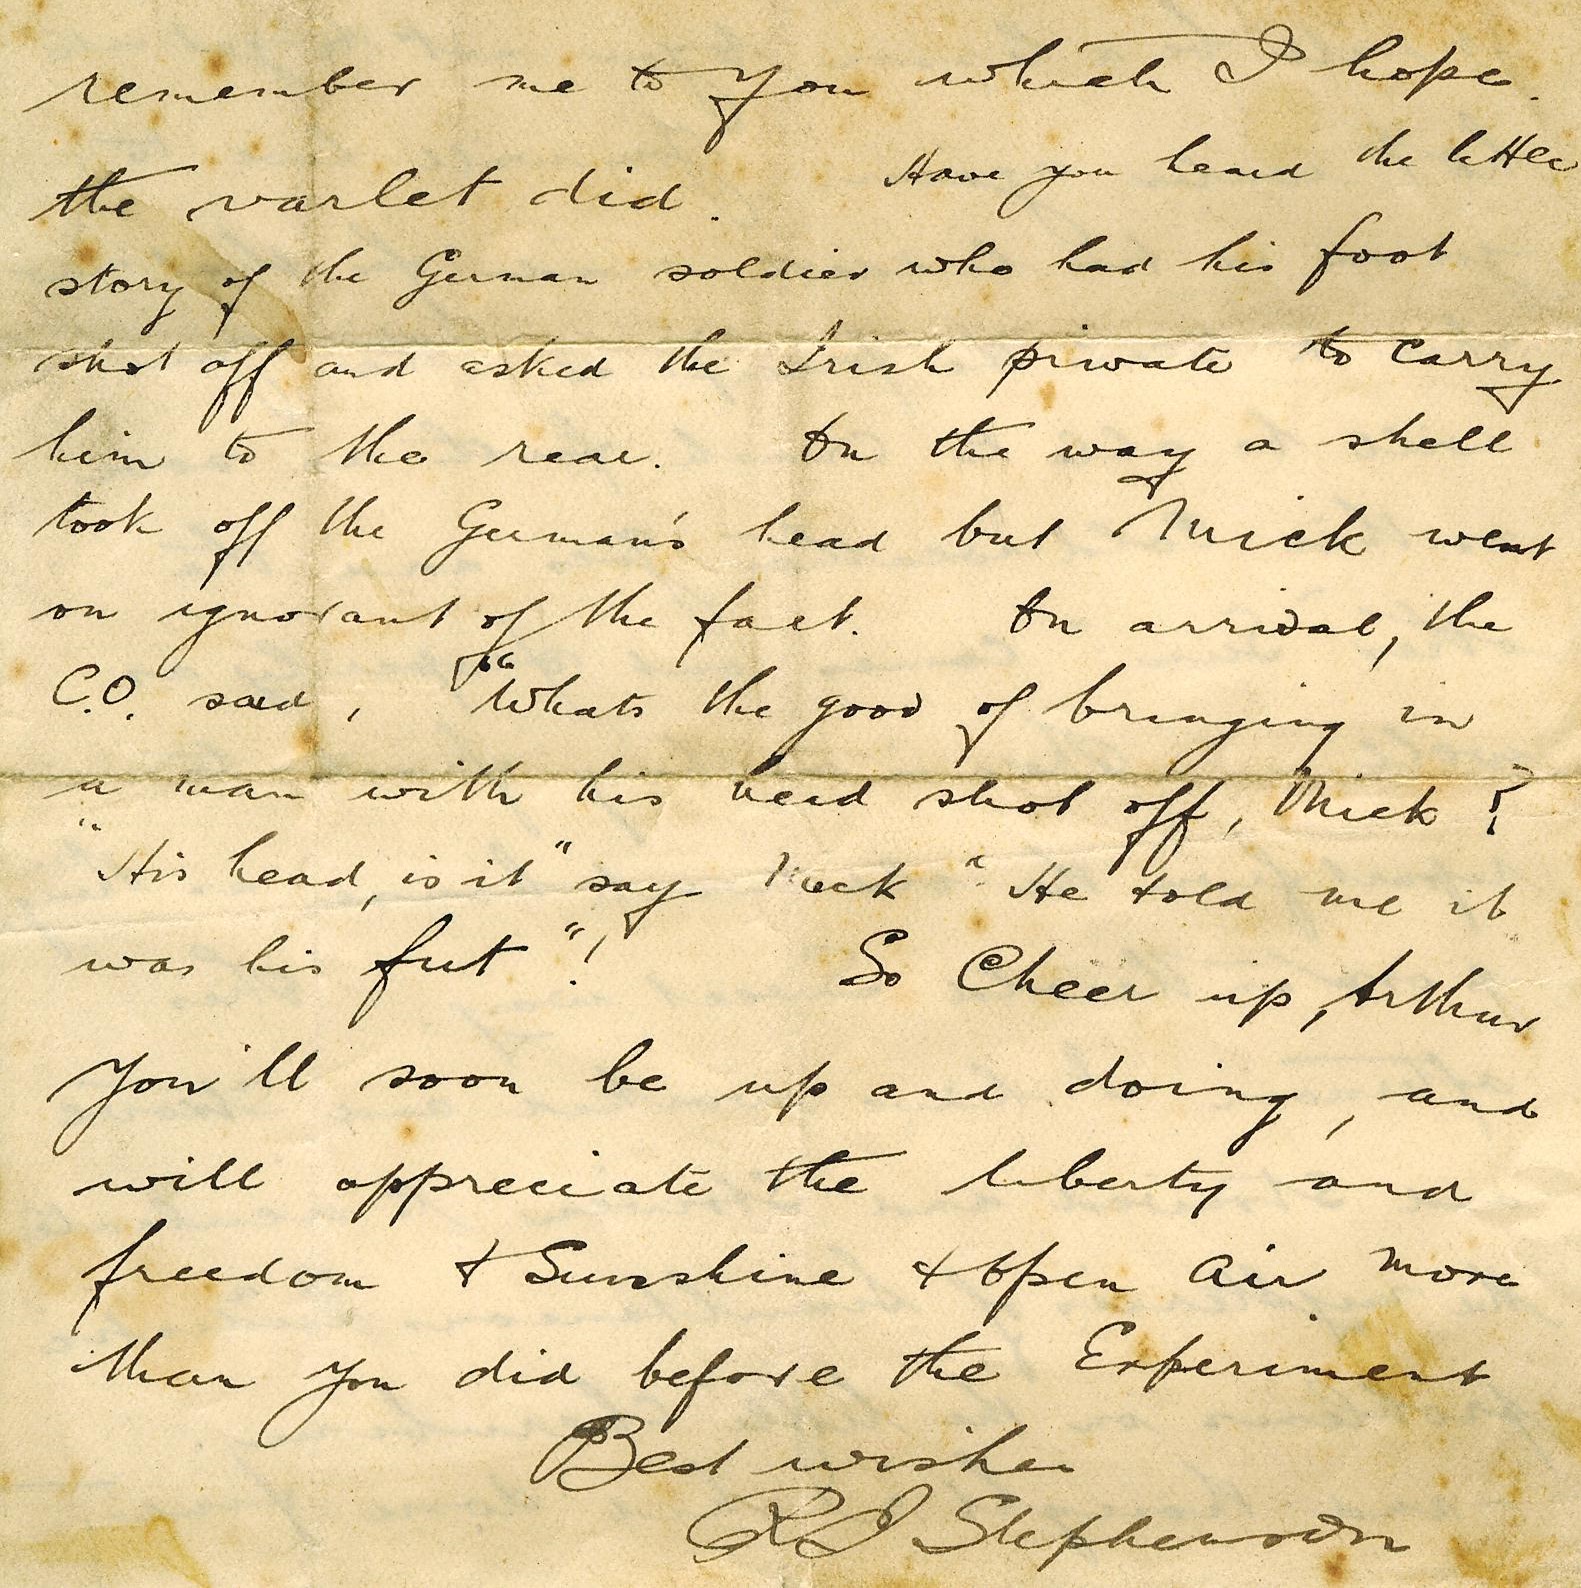 remember me to you which I hope.
the varlet did. Have you heard the little
story of the German soldier who had his foot
shot off and asked the Irish private to carry
him to the rear. On the way a shell
took off the German's head but Mick went
on ignorant of the fact. On arrival, the
C.O. said, "Whats the good of bringing in
a man with his head shot off, Mick?
"His head, is it" say Mick "He told me it
was his fut"!  So Cheer up, Arthur
You'll soon be up and doing, and
will appreciate the liberty and
freedom & Sunshine & Open Air more
than you did before the Experiment
Best wishes
R J Stephenson